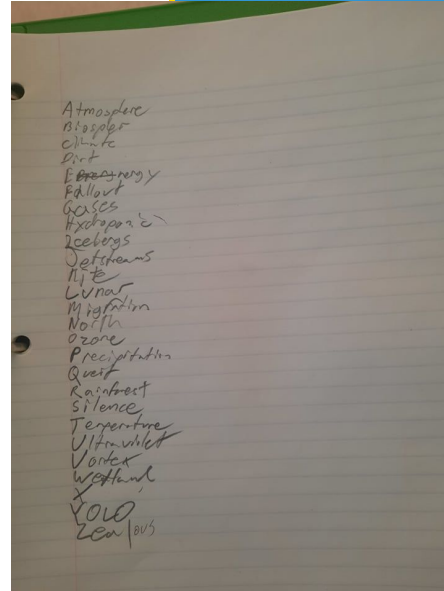 Atmosphere
Biospher
climate
Dirt
Energy
Fallout
Gases
Hydroponic
Icebergs
Jetstreams
Kite
Lunar
Migration
North
Ozone
Precipitation
Quest
Rainforest
Silence
Temperature
Ultraviolet
Vortex
Wetland
X
YOLO
Zealous